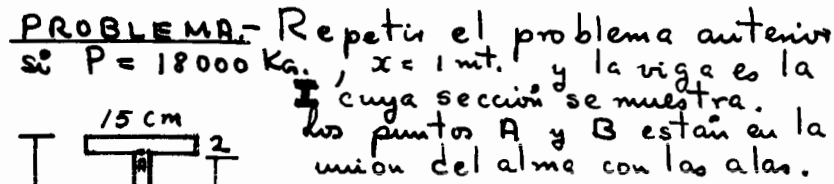 PROBLEMA.- Repetir el problema anterior
si P = 18000 Kg., x = 1 mt. y la viga es la
I cuya sección se muestra.
Los puntos A y B están en la
unión del alma con las alas.
15 cm
2
A